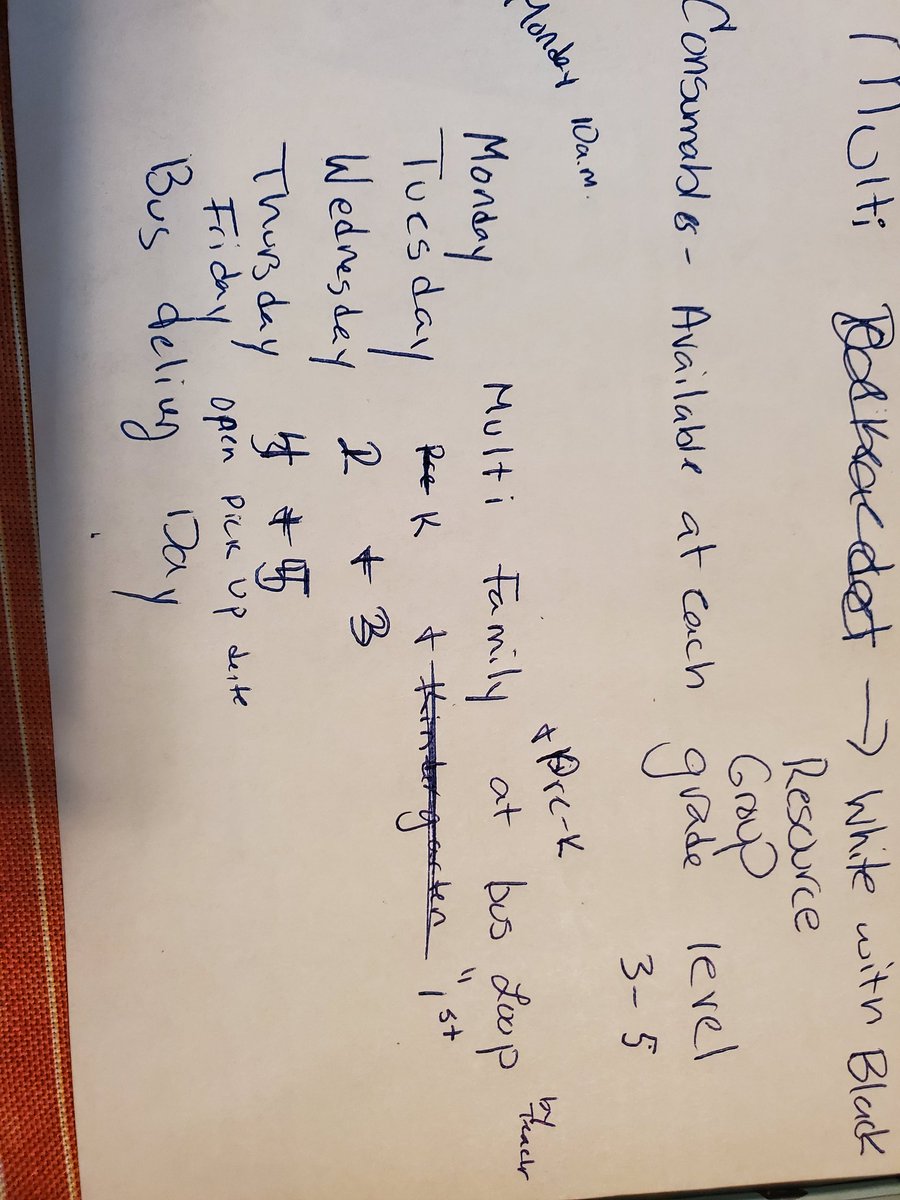 Multi → White with Black
Resource
Group
Consumables - Available at each grade level
3-5
Monday 10a.m.
+ Pre-K
by Teachr
Monday Multi Family at bus Loop
Tuesday K + Kindergarten " 1st
Wednesday 2 + 3
Thursday 4 + 5
Friday open pick up
Bus Day